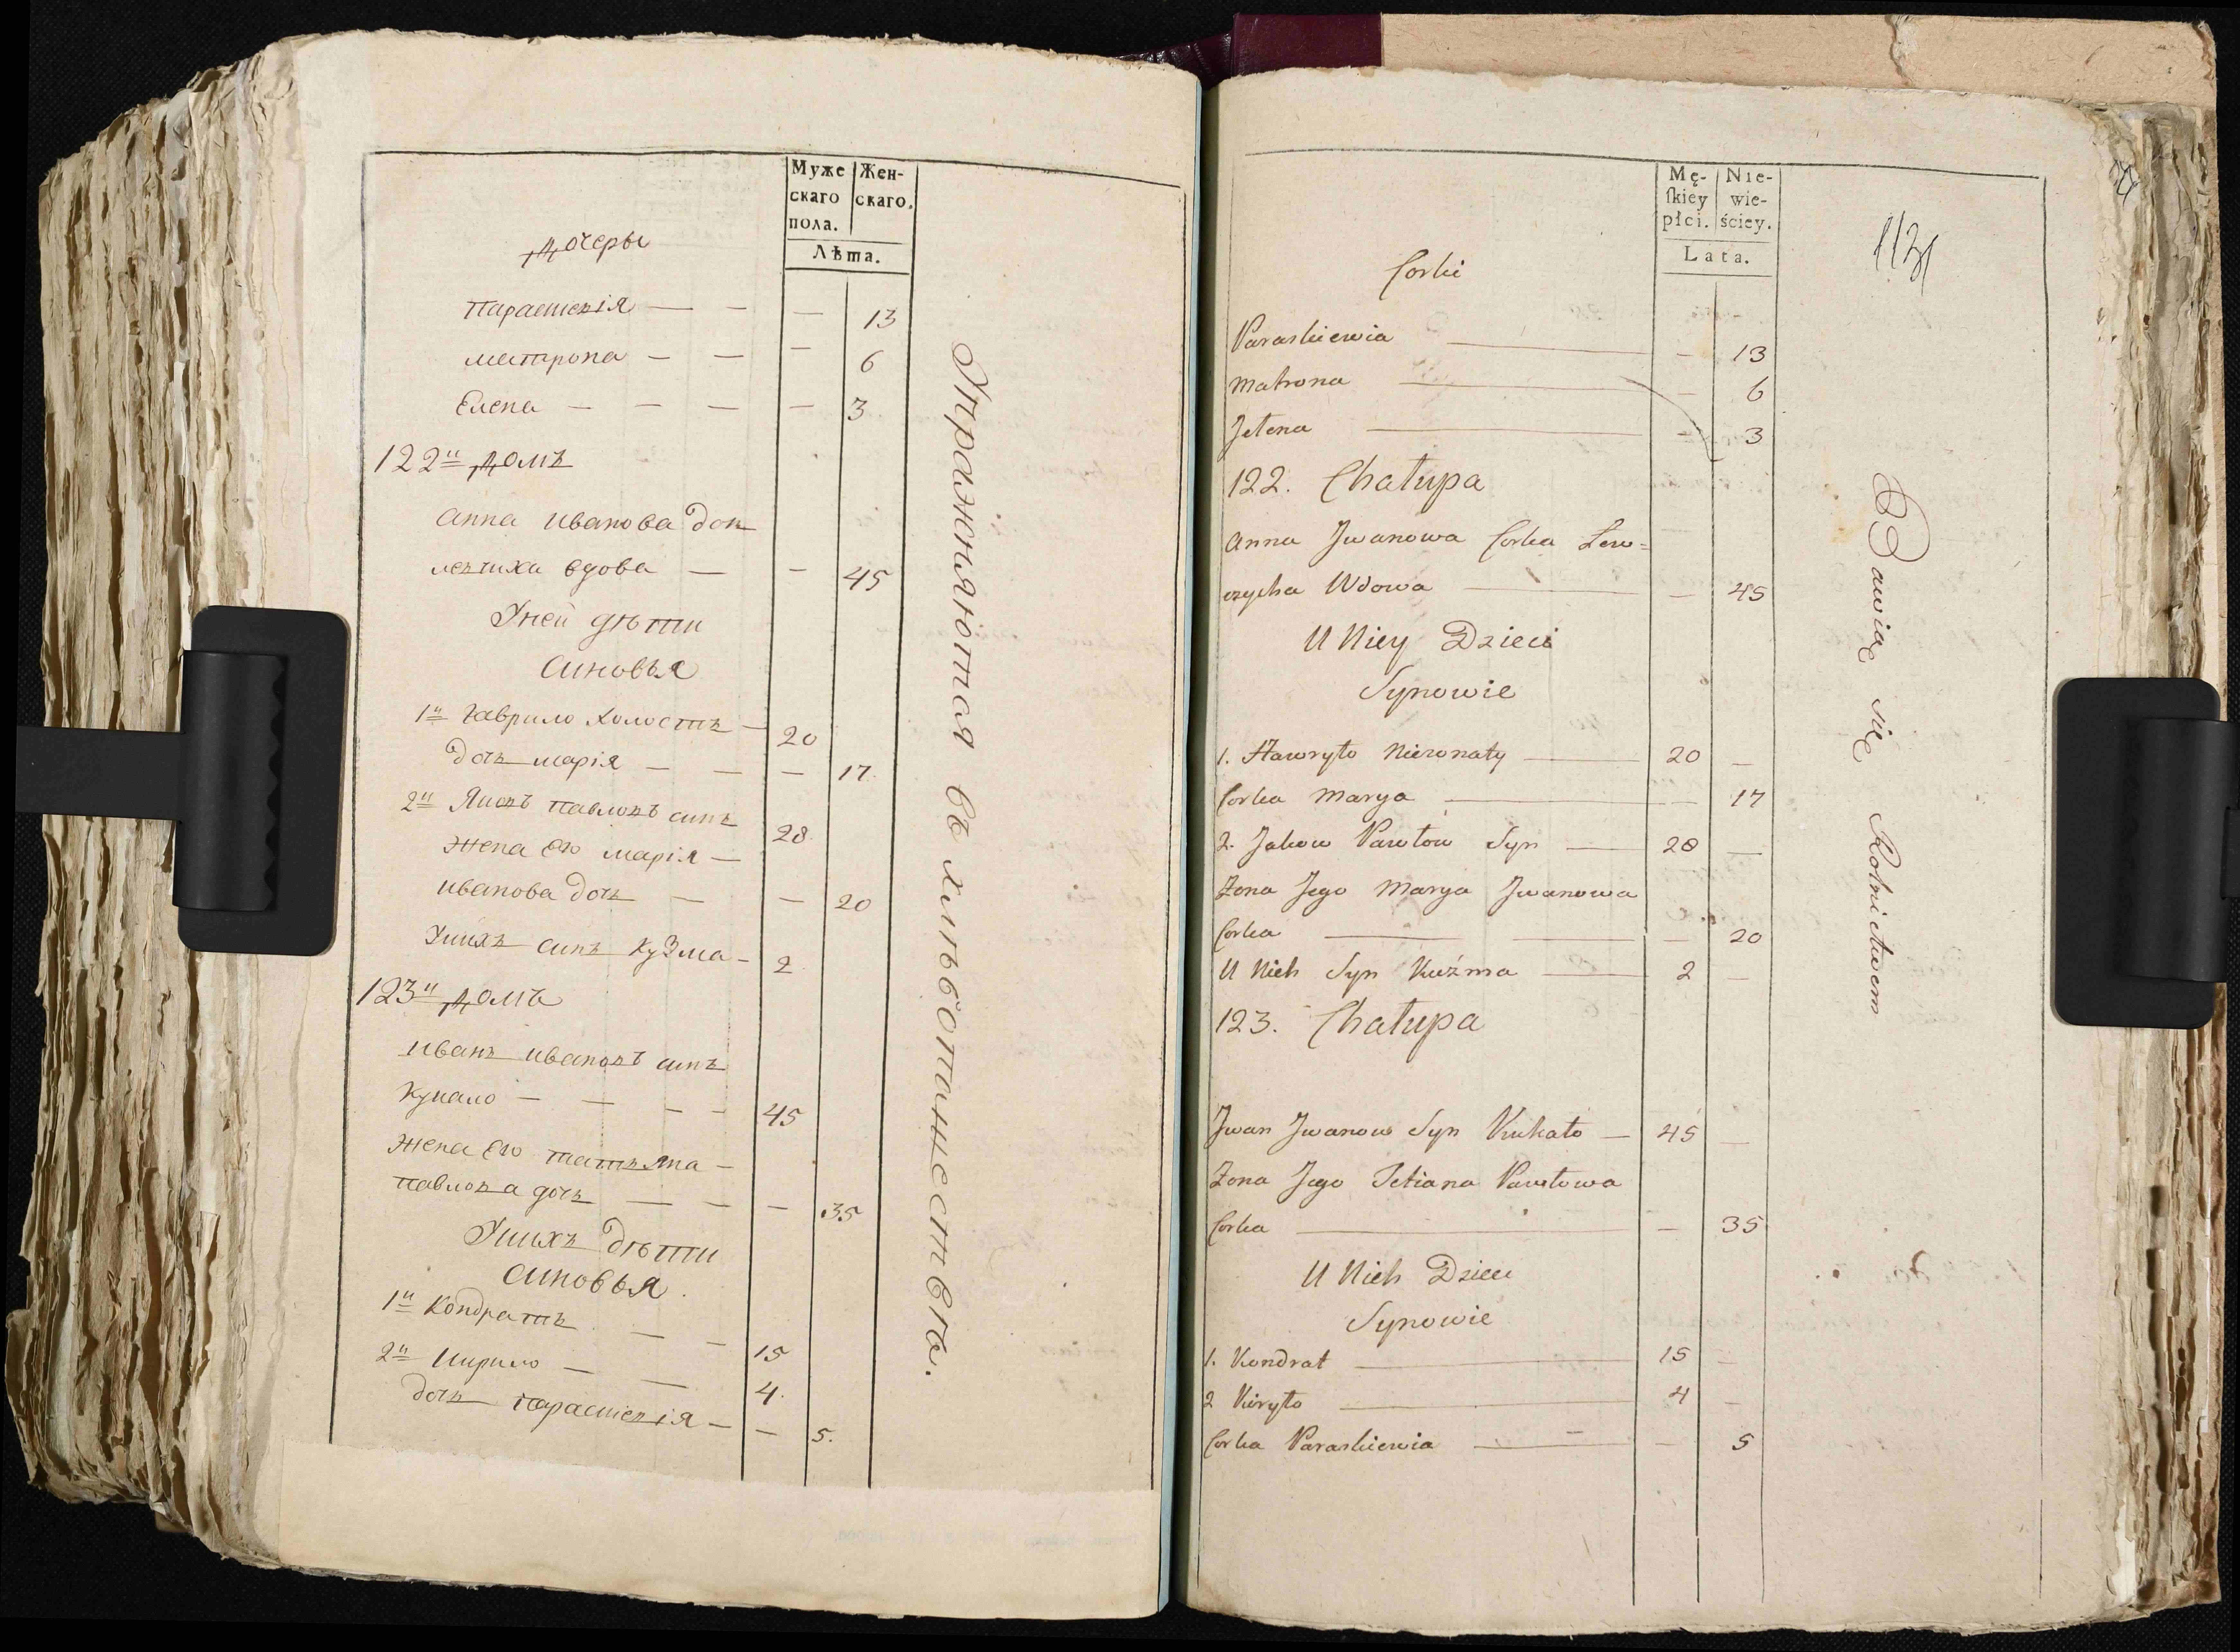 Муже
скаго
пола.
Жен-
скаго.
Лѣта.
Дочеры
Параскевія — — — 13
Матрона — — — 6
Елена — — — — 3
122й Домъ
Анна Иванова дочь
вдова — — 45
У ней дѣти
Синовья
1й Гаврило холостъ — 20
дочь Марія — — — 17
2й Яковъ Павловъ синъ 28
Жена его Марія —
Иванова дочь — — 20
У нихъ синъ Кузма — 2
123й Домъ
Иванъ Ивановъ синъ
Кукало — — — — 45
Жена его Татьяна —
Павлова дочь — — — 35
У нихъ дѣти
Синовья
1й Кондратъ — — 15
2й Кирило — — 4
дочь Параскевія — — 5.
Упражняются въ хлѣбопашествѣ.
Mę-
ſkiey
płci.
Nie-
wie-
ściey.
Lata.
113
Corki
Paraskiewia — — 13
Matrona — — 6
Jelena — — 3
122. Chałupa
Anna Jwanowa Corka Lew=
czycha Wdowa — — 45
U Niey Dzieci
Synowie
1. Hawryło Nieżonaty — 20 —
Corka Marya — — 17
2. Jakow Pawłow Syn — 28 —
Żona Jego Marya Jwanowa
Corka — — — 20
U Nich Syn Kuźma — 2 —
123. Chałupa
Jwan Jwanow Syn Kukało — 45 —
Żona Jego Tetiana Pawłowa
Corka — — 35
U Nich Dzieci
Synowie
1. Kondrat — 15 —
2 Kiryło — 4 —
Corka Paraskiewia — — — 5
Bawią się Rolnictwem